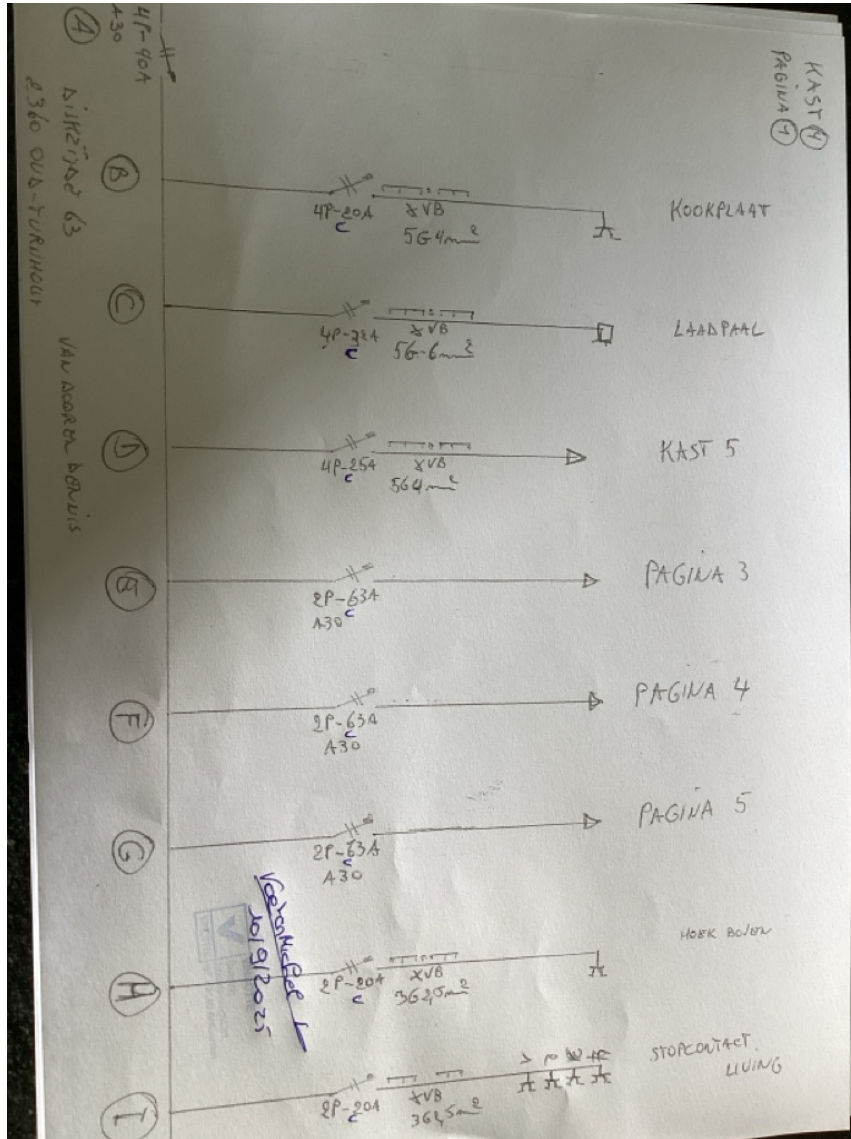 KAST 4
PAGINA 1
4P-40A
A30
A
DiJKZijDE 63
2360 OUD-TURNHOUT
VAN DOOREN DENNIS
B
4P-20A
C
XVB
5G4mm²
KOOKPLAAT
C
4P-32A
C
XVB
5G-6mm²
LAADPAAL
D
4P-25A
C
XVB
5G4mm²
KAST 5
E
2P-63A
C
A30
PAGINA 3
F
2P-63A
C
A30
PAGINA 4
G
2P-63A
C
A30
PAGINA 5
10/9/2025
H
2P-20A
C
XVB
3G2,5mm²
HOEK BOVEN
I
2P-20A
XVB
3G2,5mm²
1 2 3 4
STOPCONTACT
LIVING